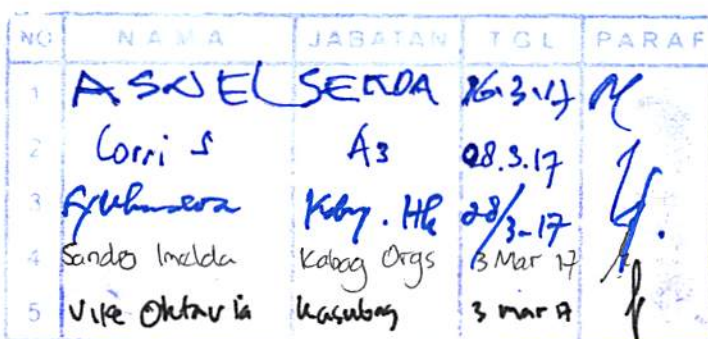 NO NAMA JABATAN TGL PARAF
1 ASNEL SEKDA 16.3.17
2 Lorri S A3 08.3.17
3 Kabag. Hk 08/3-17
4 Sandra Imelda Kabag Orgs 3 Mar 17
5 Vike Oktavia Kasubag 3 mar 17